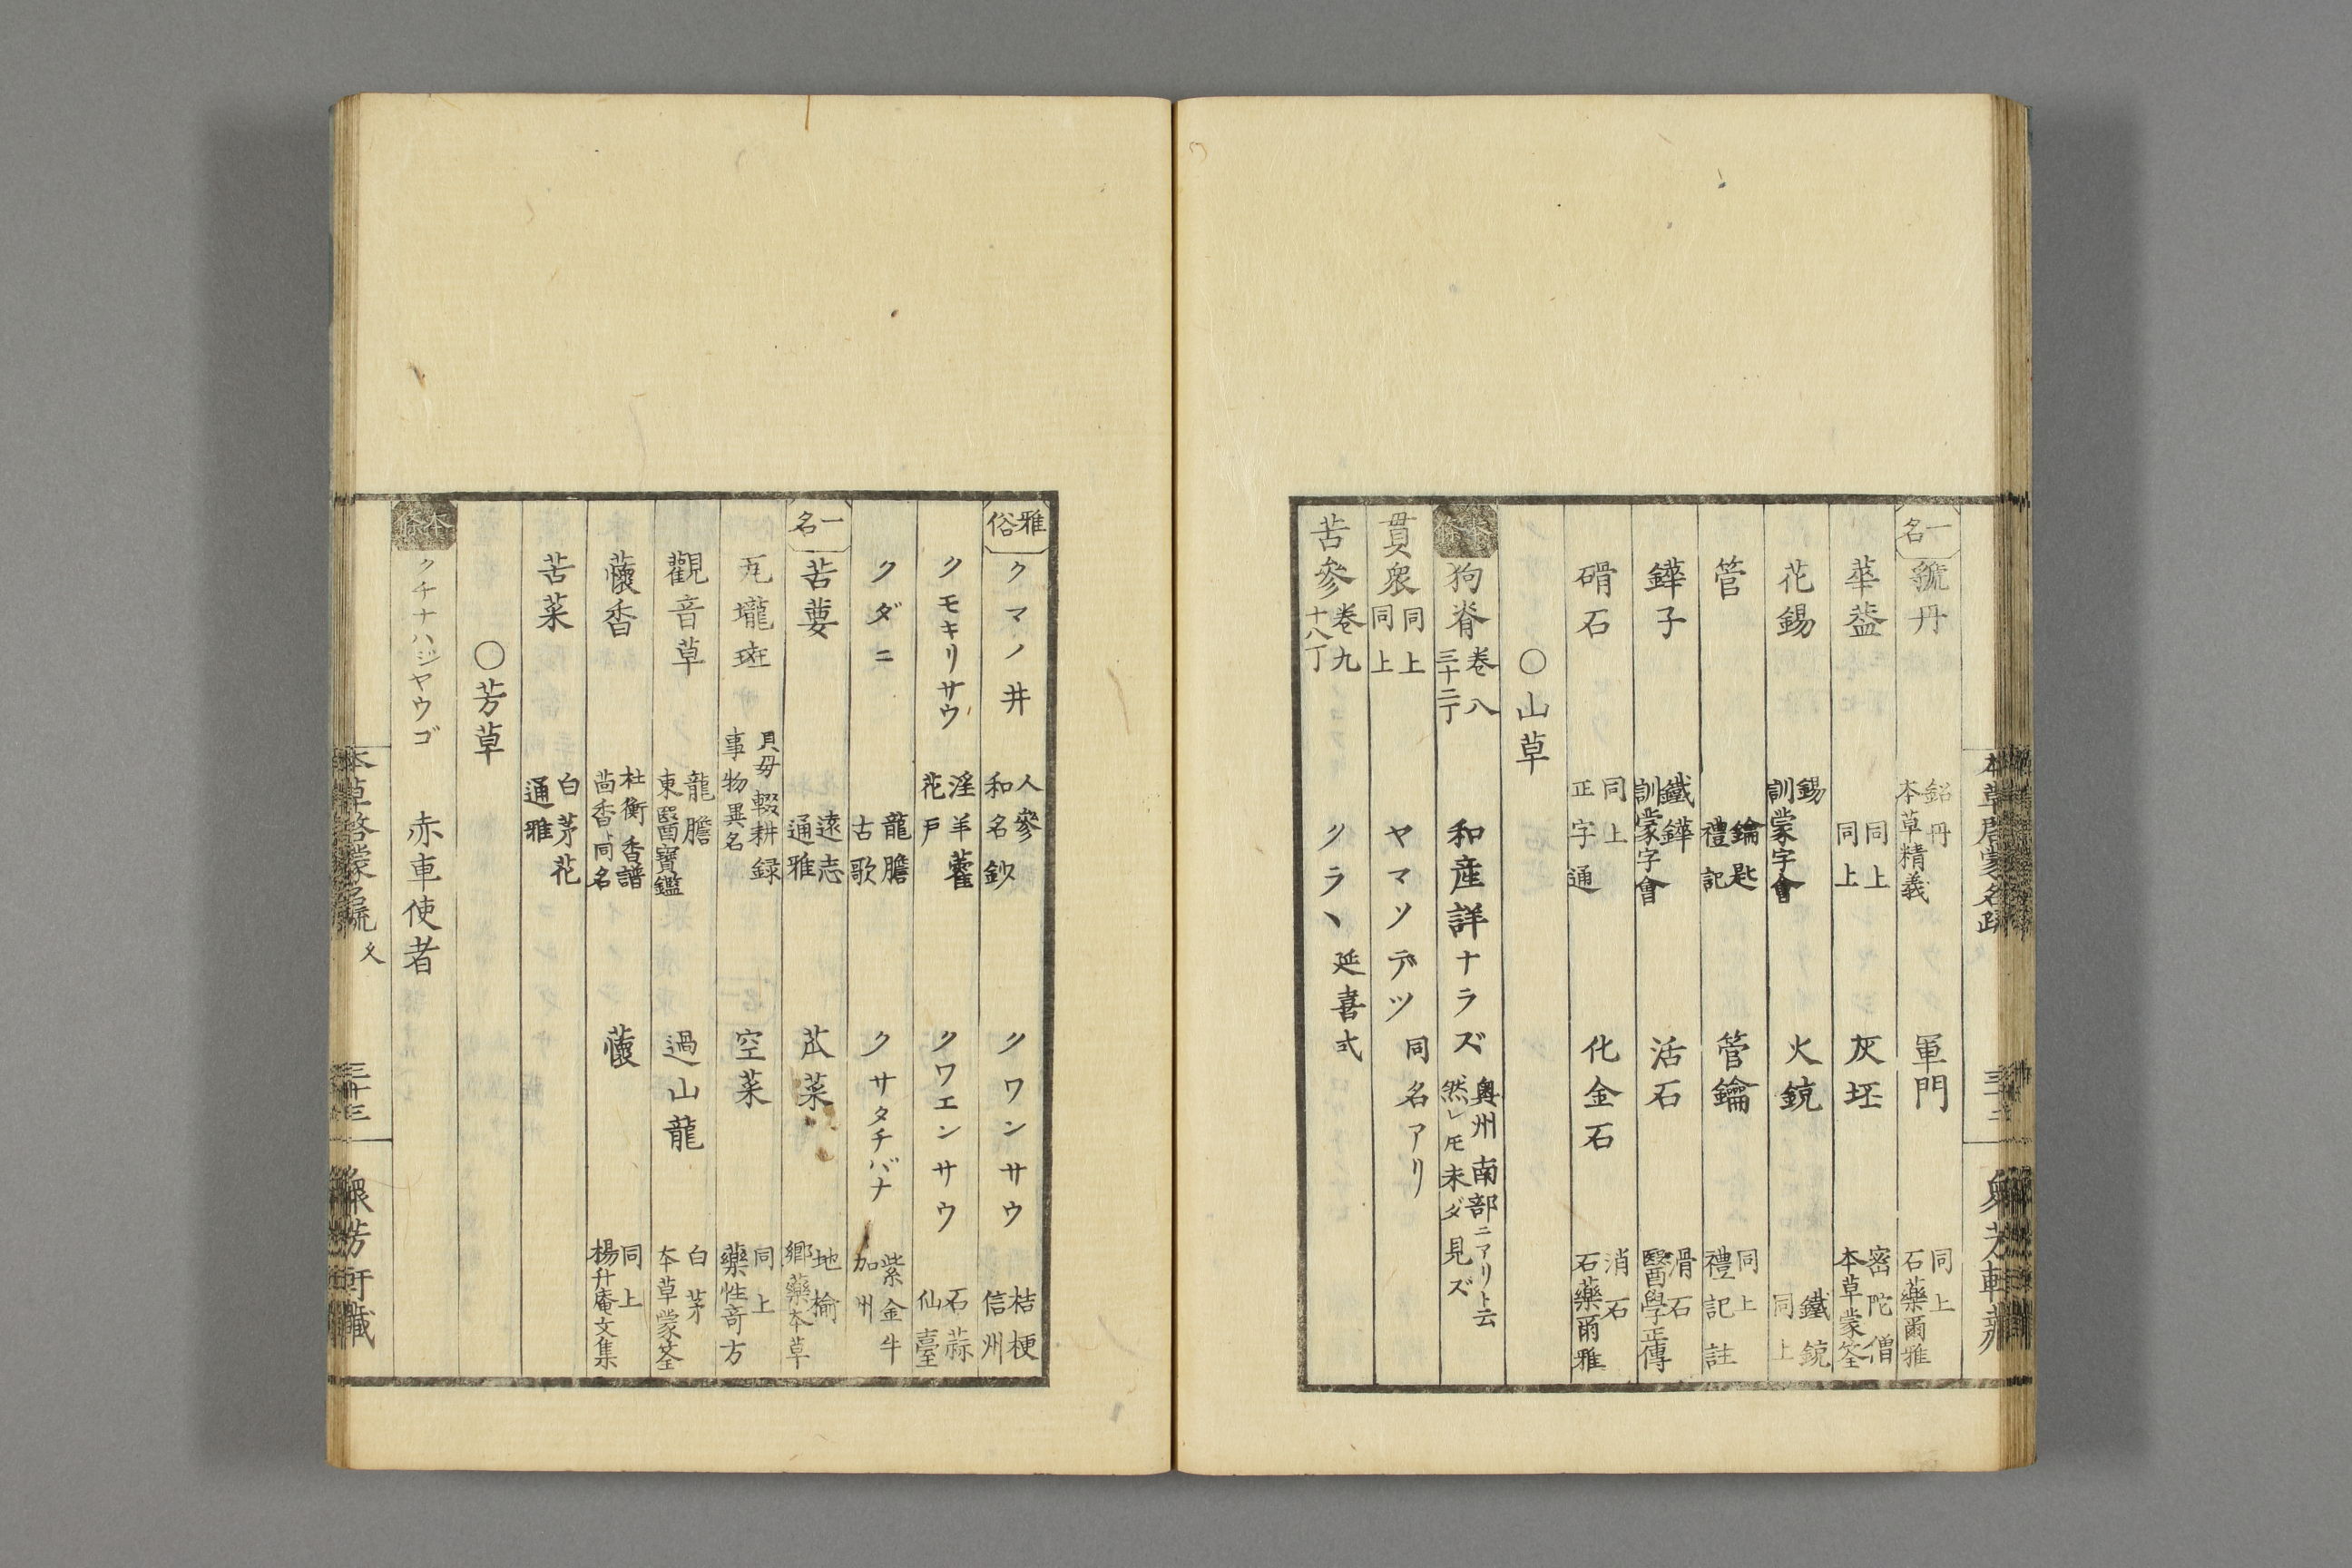 一名 虢丹 鉛丹 本草精義 軍門 同上 石藥爾雅
華蓋 同上 同上 灰坯 密陀僧 本草蒙筌
花錫 錫 訓蒙字會 火鏡 鐵鏡 同上
管 鑰匙 禮記 管鑰 同上 禮記註
鏵子 鐵鏵 訓蒙字會 活石 滑石 醫學正傳
磆石 同上 正字通 化金石 消石 石藥爾雅
○山草
本條 狗脊 卷八 三十二丁 和産詳ナラズ 奥州南部ニアリト云 然レ𪜈未ダ見ズ
貫衆 同上 同上 ヤマソテツ 同名アリ
苦參 卷九 十八丁 クララ 延喜式
雅俗 クマノ井 人參 和名鈔 クワンサウ 桔梗 信州
クモキリサウ 淫羊藿 花戸 クワエンサウ 石蒜 仙臺
クダニ 龍膽 古歌 クサタチバナ 紫金牛 加州
一名 苦葽 遠志 通雅 苽菜 地榆 鄉藥本草
瓦壠斑 貝母 輟耕録 事物異名 空菜 同上 藥性竒方
觀音草 龍膽 東醫寶鑑 過山龍 白茅 本草蒙筌
蘹香 杜衡 香譜 茴香ト同名 蘹 同上 楊升庵文集
苦菜 白茅花 通雅
○芳草
本條 クチナハジヤウゴ 赤車使者
本草啓蒙名疏 三十三 衆芳軒藏